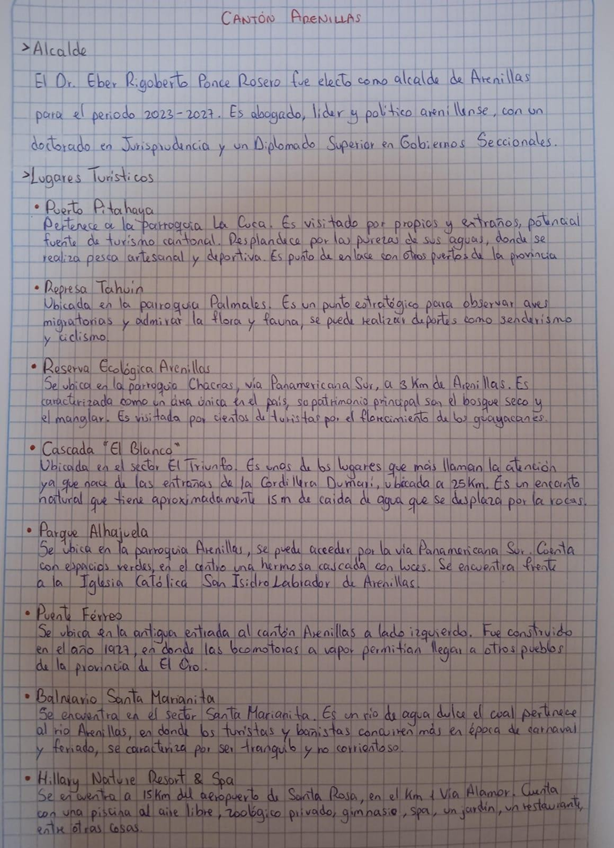 CANTÓN ARENILLAS
>Alcalde
El Dr. Eber Rigoberto Ponce Rosero fue electo como alcalde de Arenillas
para el periodo 2023-2027. Es abogado, líder y político arenillense, con un
doctorado en Jurisprudencia y un Diplomado Superior en Gobiernos Seccionales.
>Lugares Turísticos
• Puerto Pitahaya
Pertenece a la parroquia La Cuca. Es visitado por propios y extraños, potencial
fuente de turismo cantonal. Resplandece por las purezas de sus aguas, donde se
realiza pesca artesanal y deportiva. Es punto de enlace con otros puertos de la provincia
• Represa Tahuín
Ubicada en la parroquia Palmales. Es un punto estratégico para observar aves
migratorias y admirar la flora y fauna, se puede realizar deportes como senderismo
y ciclismo.
• Reserva Ecológica Arenillas
Se ubica en la parroquia Chacras, vía Panamericana Sur, a 3 Km de Arenillas. Es
caracterizada como un área única en el país, su patrimonio principal son el bosque seco y
el manglar. Es visitada por cientos de turistas por el florecimiento de los guayacanes.
• Cascada "El Blanco"
Ubicada en el sector El Triunfo. Es unos de los lugares que más llaman la atención
ya que nace de las entrañas de la Cordillera Dumari, ubicada a 25Km. Es un encanto
natural que tiene aproximadamente 15m de caída de agua que se desplaza por la rocas.
• Parque Alhajuela
Se ubica en la parroquia Arenillas, se puede acceder por la vía Panamericana Sur. Cuenta
con espacios verdes, en el centro una hermosa cascada con luces. Se encuentra frente
a la Iglesia Católica San Isidro Labrador de Arenillas.
• Puente Férreo
Se ubica en la antigua entrada al cantón Arenillas a lado izquierdo. Fue construido
en el año 1927, en donde las locomotoras a vapor permitían llegar a otros pueblos
de la provincia de El Oro.
• Balneario Santa Marianita
Se encuentra en el sector Santa Marianita. Es un río de agua dulce el cual pertenece
al río Arenillas, en donde los turistas y bañistas concurren más en época de carnaval
y feriado, se caracteriza por ser tranquilo y no correntoso.
• Hillary Nature Resort & Spa
Se encuentra a 15Km del aeropuerto de Santa Rosa, en el Km 1 Vía Alamor. Cuenta
con una piscina al aire libre, zoológico privado, gimnasio, spa, un jardín, un restaurante,
entre otras cosas.